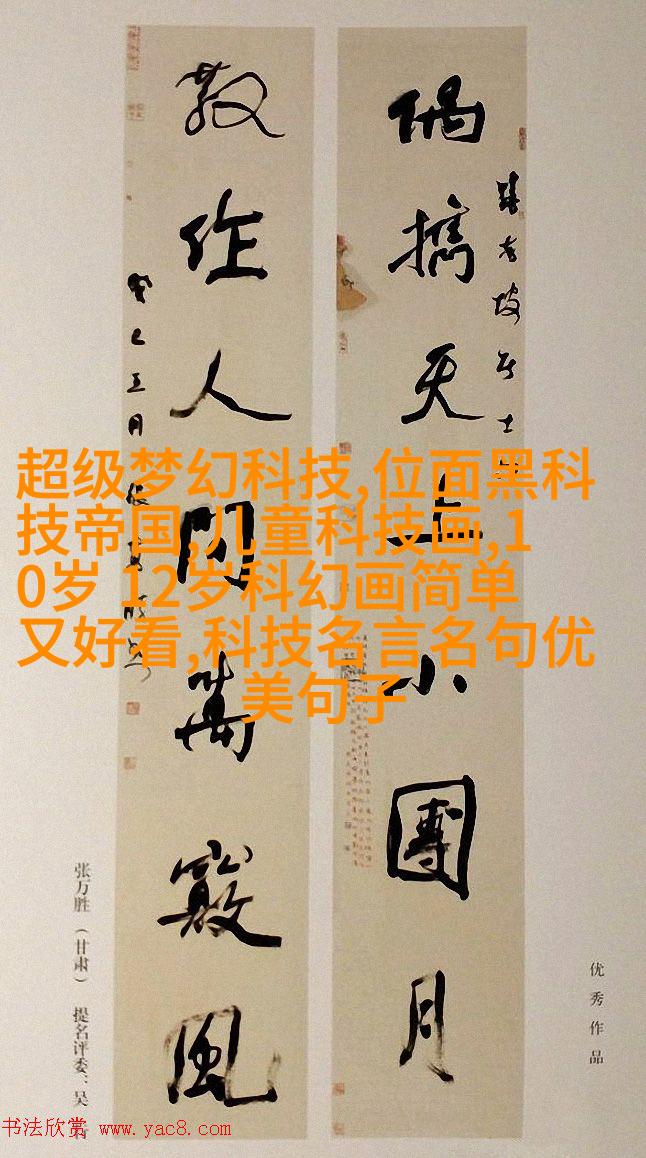 偶攜天上小團月
散作人間萬竅風
癸巳五月
超级梦幻科技,位面黑科
技帝国,儿童科技画,1
0岁 12岁科幻画简单
又好看,科技名言名句优
美句子
优秀作品
张万胜（甘肃） 提名评委：吴
书法欣赏 www.yac8.com